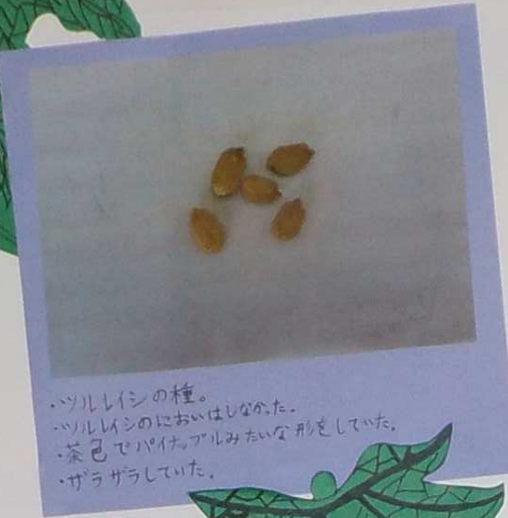 ・ツルレイシの種。
・ツルレイシのにおいはしなかった。
・茶色でパイナップルみたいな形をしていた。
・ザラザラしていた。